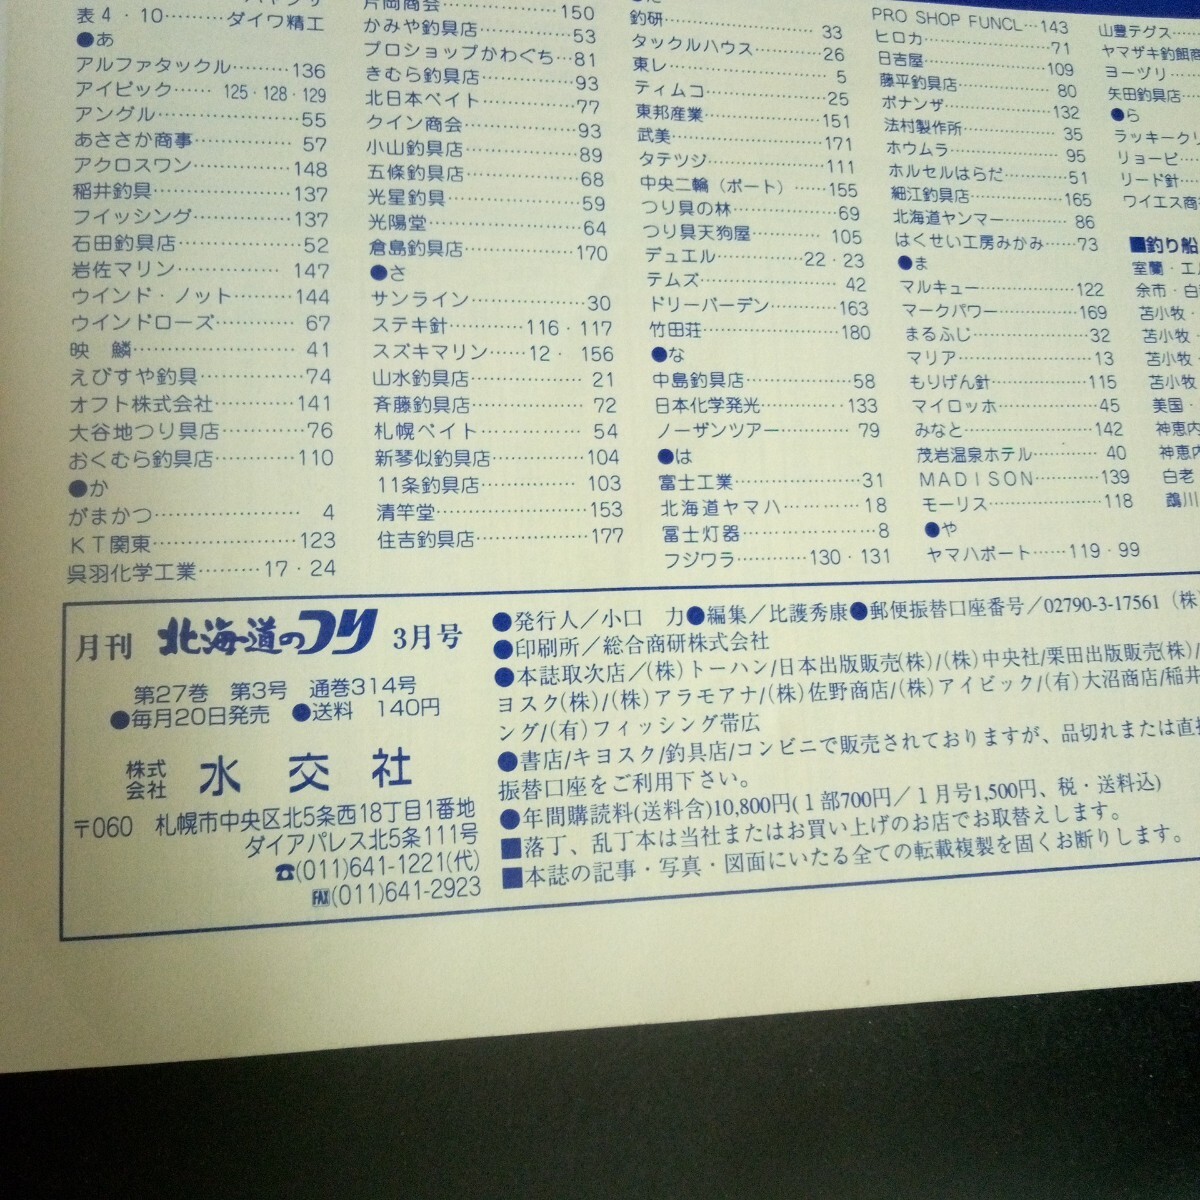 表4・10………ダイワ精工
●あ
アルファタックル………136
アイビック…… 125・128・129
アングル………………55
あささか商事…………57
アクロスワン…………148
稲井釣具………………137
フイッシング…………137
石田釣具店……………52
岩佐マリン……………147
ウインド・ノット………144
ウインドローズ…………67
映　鱗…………………41
えびすや釣具…………74
オフト株式会社…………141
大谷地つり具店…………76
おくむら釣具店…………110
●か
がまかつ…………………4
KT関東…………………123
呉羽化学工業………17・24
片岡商会………………150
かみや釣具店……………53
プロショップかわぐち…81
きむら釣具店……………93
北日本ベイト……………77
クイン商会………………93
小山釣具店………………89
五條釣具店………………68
光星釣具…………………59
光陽堂……………………64
倉島釣具店………………170
●さ
サンライン………………30
ステキ針…………116・117
スズキマリン……12・156
山水釣具店………………21
斉藤釣具店………………72
札幌ベイト………………54
新琴似釣具店……………104
11条釣具店………………103
清竿堂……………………153
住吉釣具店………………177
釣研………………………33
タックルハウス…………26
東レ………………………5
ティムコ…………………25
東邦産業…………………151
武美………………………171
タテツジ…………………111
中央二輪（ボート）……155
つり具の林………………69
つり具天狗屋……………105
デュエル……………22・23
テムズ……………………42
ドリーバーデン…………163
竹田荘……………………180
●な
中島釣具店………………58
日本化学発光……………133
ノーザンツアー…………79
●は
富士工業…………………31
北海道ヤマハ……………18
冨士灯器…………………8
フジワラ…………130・131
PRO SHOP FUNCL…143
ヒロカ……………………71
日吉屋……………………109
藤平釣具店………………80
ボナンザ…………………132
法村製作所………………35
ホウムラ…………………95
ホルセルはらだ…………51
細江釣具店………………165
北海道ヤンマー…………86
はくせい工房みかみ……73
●ま
マルキュー………………122
マークパワー……………169
まるふじ…………………32
マリア……………………13
もりげん針………………115
マイロッホ………………45
みなと……………………142
茂岩温泉ホテル…………40
MADISON………………139
モーリス…………………118
●や
ヤマハボート……119・99
山豊テグス……
ヤマザキ釣餌商
ヨーヅリ……
矢田釣具店……
●ら
ラッキークリ
リョービ……
リード針……
ワイエス商
■釣り船
室蘭・エ
余市・白
苫小牧・
苫小牧・
苫小牧・
苫小牧・
美国・
神恵内
神恵内
白老
鵡川
月刊 北海道のつり 3月号
第27巻　第3号　通巻314号
●毎月20日発売　●送料　140円
株式会社 水交社
〒060　札幌市中央区北5条西18丁目1番地
ダイアパレス北5条111号
☎(011)641-1221(代)
FAX(011)641-2923
●発行人／小口　力●編集／比護秀康●郵便振替口座番号／02790-3-17561（株）
●印刷所／総合商研株式会社
●本誌取次店／(株)トーハン/日本出版販売(株)/(株)中央社/栗田出版販売(株)/
ヨスク(株)/(株)アラモアナ/(株)佐野商店/(株)アイビック/(有)大沼商店/稲井
ング/(有)フィッシング帯広
●書店/キヨスク/釣具店/コンビニで販売されておりますが、品切れまたは直接
振替口座をご利用下さい。
●年間購読料(送料含)10,800円(１部700円／１月号1,500円、税・送料込)
■落丁、乱丁本は当社またはお買い上げのお店でお取替えします。
■本誌の記事・写真・図面にいたる全ての転載複製を固くお断りします。